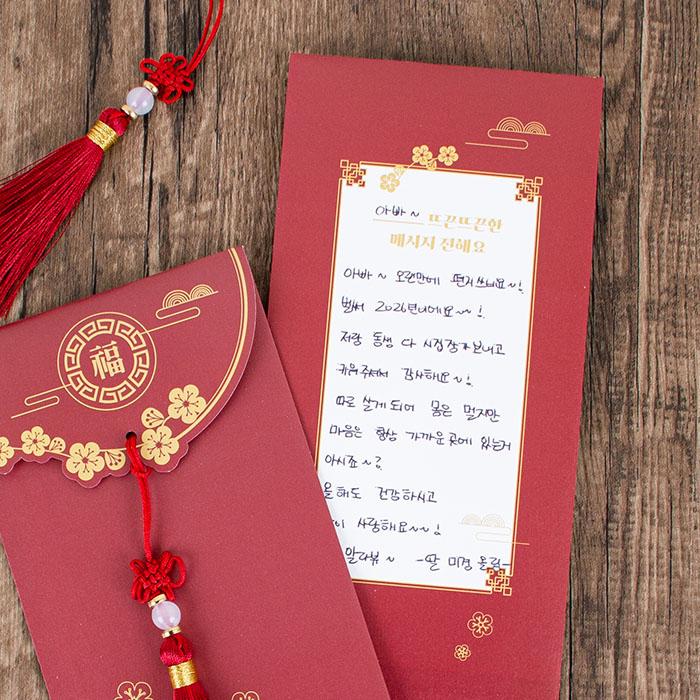 福
아빠~ 뜨끈뜨끈한
메시지 전해요
아빠~ 오랜만에 편지쓰네요~!
벌써 2026년이에요~!
저랑 동생 다 시집장가보내고
키워주셔서 감사해요~!
따로 살게되어 몸은 멀지만
마음은 항상 가까운곳에 있는거
아시죠~?
올해도 건강하시고
이 사랑해요~~!
알라뷰~ -딸 미경 올림-